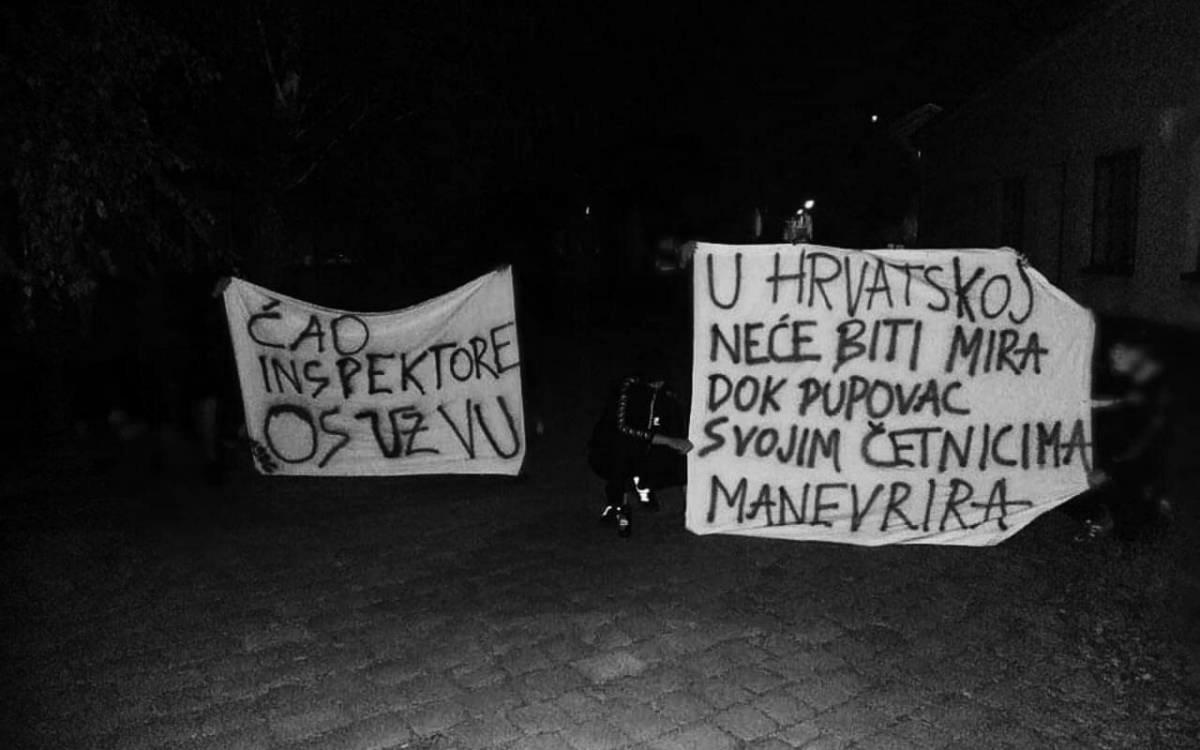 ČAO
INSPEKTORE
OS UŽ VU
U HRVATSKOJ
NEĆE BITI MIRA
DOK PUPOVAC
SVOJIM ČETNICIMA
MANEVRIRA